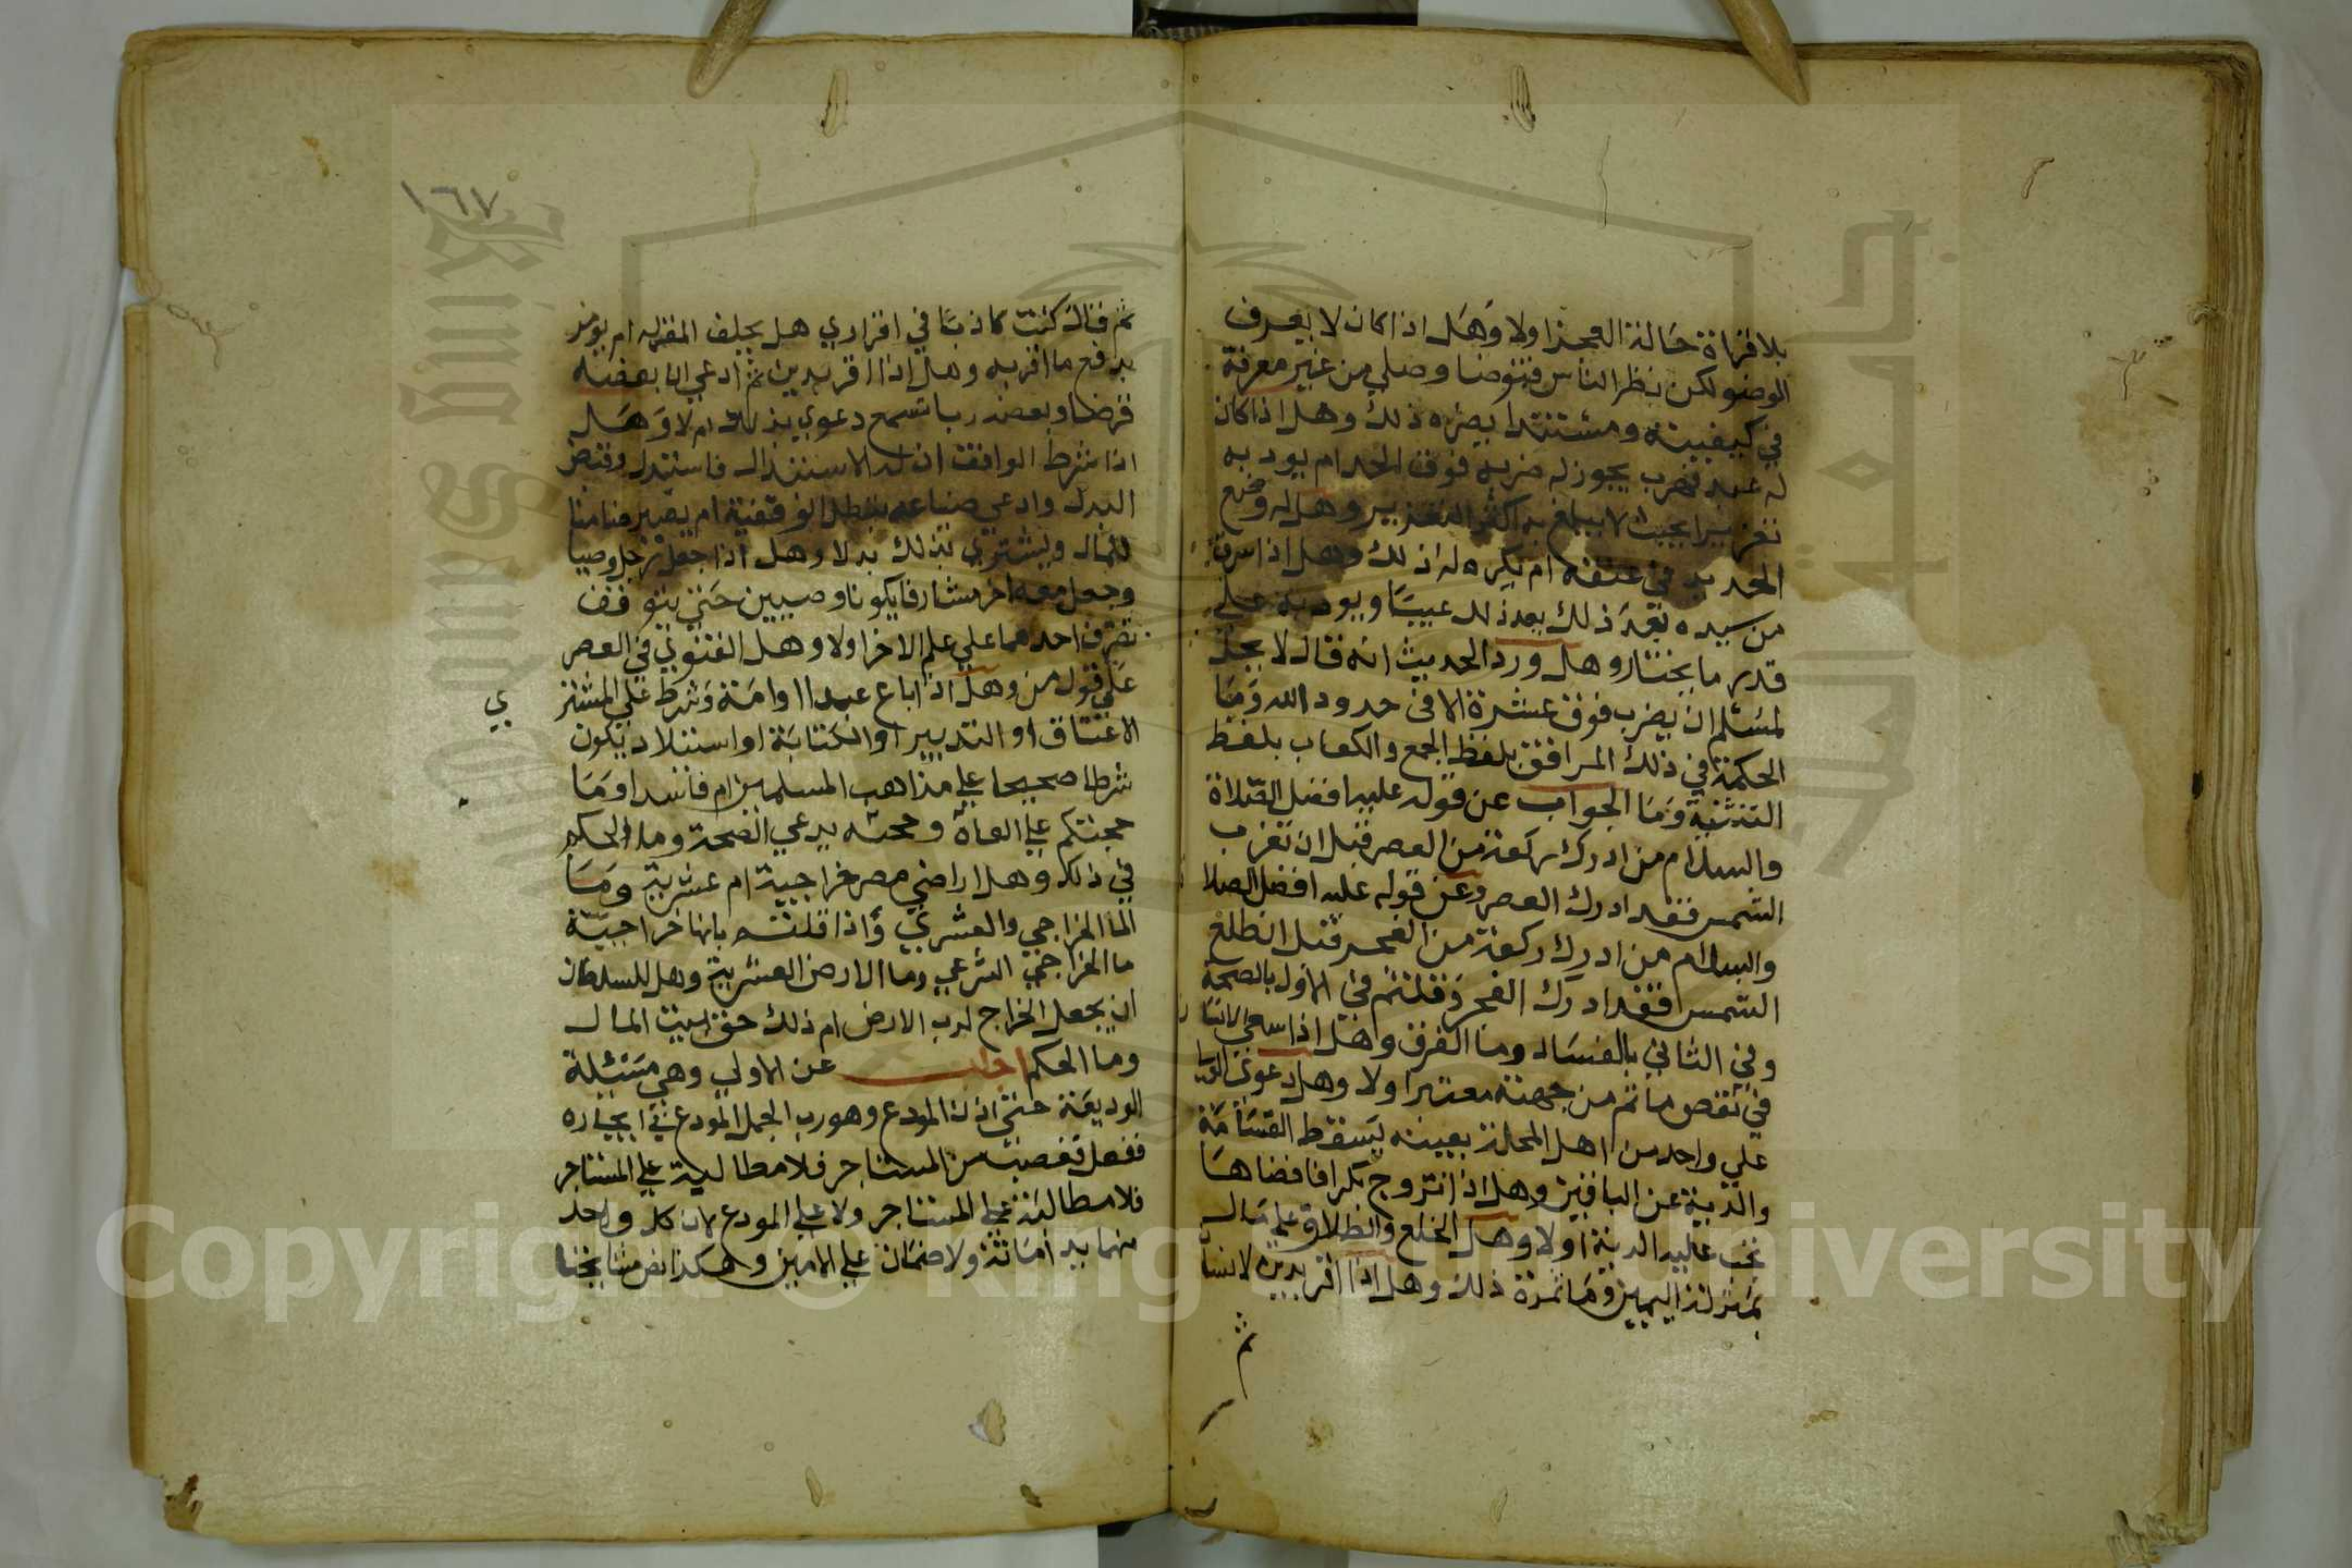 بلا قراة حالة العجز اولا وهل اذا كان لا يعرف
الوضو لكن نظر الناس فتوضا وصلي من غير معرفة
في كيفيته ومستندا يضره ذلك وهل اذا كان
له عبد فضرب يجوز له ضربه فوق الحد ام يودبه
تعزيرا بحيث لا يبلغ به اكثر التعزير وهل له وضع
الحديد في عنقه ام يكره له ذلك وهل اذا سرق
من سيده يعد ذلك عيبا ويودبه علي
قدر ما يختار وهل ورد الحديث انه قال لا يحل
لمسلم ان يضرب فوق عشرة الا في حدود الله وما
الحكمة في ذلك المرافق بلفظ الجمع والكعاب بلفظ
التثنية وما الجواب عن قوله عليه افضل الصلاة
والسلام من ادرك ركعة من العصر قبل ان تغرب
الشمس فقد ادرك العصر وعن قوله عليه افضل الصلا
والسلام من ادرك ركعة من الفجر قبل ان تطلع
الشمس فقد ادرك الفجر وقلتم في الاول بالصحة
وفي الثاني بالفساد وما الفرق وهل اذا سعي الانسا
في نقض ما تم من جهته معتبرا ولا وهل دعوي الولي
علي واحد من اهل المحلة بعينه يسقط القسامة
والدية عن الباقين وهل اذا تزوج بكرا فافضاها
تجب عليه الدية اولا وهل الخلع والطلاق علي مال
بمنزلة اليمين وما ثمرة ذلك وهل اذا اقر بدين لانسا
ثم
١٦٧
ثم قال كنت كاذبا في اقراري هل يحلف المقر له ام يومر
بدفع ما اقر به وهل اذا اقر بدين ثم ادعي ان بعضه
قرضا وبعضه ربا تسمع دعوي بذلك ام لا وهل
اذا شرط الواقف ان له الاستبدال فاستبدل وقبض
البدل وادعي ضياعه تبطل الوقفية ام يصير ضامنا
للمال ويشتري بذلك بدلا وهل اذا جعل رجل وصيا
وجعل معه اخر مشارفا يكونا وصيين حتي يتوقف
تصرف احدهما علي علم الاخر اولا وهل الفتوي في العصر
علي قول من وهل اذا باع عبدا او امة وشرط علي المشتر
ي
الاعتاق او التدبير او الكتابة او استيلاد يكون
شرطا صحيحا علي مذاهب المسلمين ام فاسدا وما
في ذلك وهل اراضي مصر خراجية ام عشرية وما
الما الخراجي والعشري واذا قلتم بانها خراجية
ما الخراجي الشرعي وما الارض العشرية وهل للسلطان
ان يجعل الخراج لرب الارض ام ذلك حق لبيت المال
وما الحكم اجاب عن الاولي وهي مسئلة
الوديعة حتي اذن المودع وهو رب الجمل المودع في ايجاره
ففعل فغصب من المستاجر فلا مطالبة علي المستاجر
فلا مطالبة علي المستاجر ولا علي المودع لان كل واحد
منهما يد امانة ولا ضمان علي الامين وهكذا نص مشايخنا
Copyright © King Saud University
جامعة الملك سعود
King Saud University